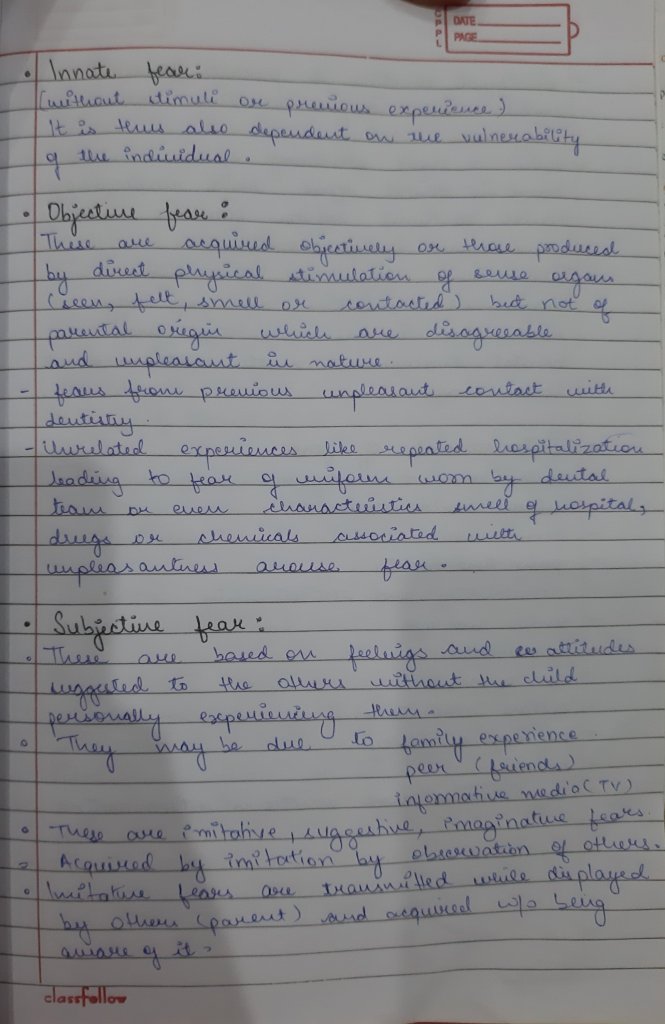 CPPL
DATE
PAGE
• Innate fear:
(without stimuli or previous experience)
It is thus also dependent on the vulnerability
of the individual.
• Objective fear:
These are acquired objectively or those produced
by direct physical stimulation of sense organs
(seen, felt, smell or contacted) but not of
parental origin which are disagreeable
and unpleasant in nature.
- fears from previous unpleasant contact with
dentistry.
- Unrelated experiences like repeated hospitalization
leading to fear of uniform worn by dental
team or even characteristics smell of hospital,
drugs or chemicals associated with
unpleasantness arouse fear.
• Subjective fear:
• These are based on feelings and attitudes
suggested to the others without the child
personally experiencing them.
• They may be due to family experience.
peer (friends)
informative media (TV)
• These are imitative, suggestive, imaginative fears.
= Acquired by imitation by observation of others.
• Imitative fears are transmitted while displayed
by others (parent) and acquired w/o being
aware of it.
classfellow